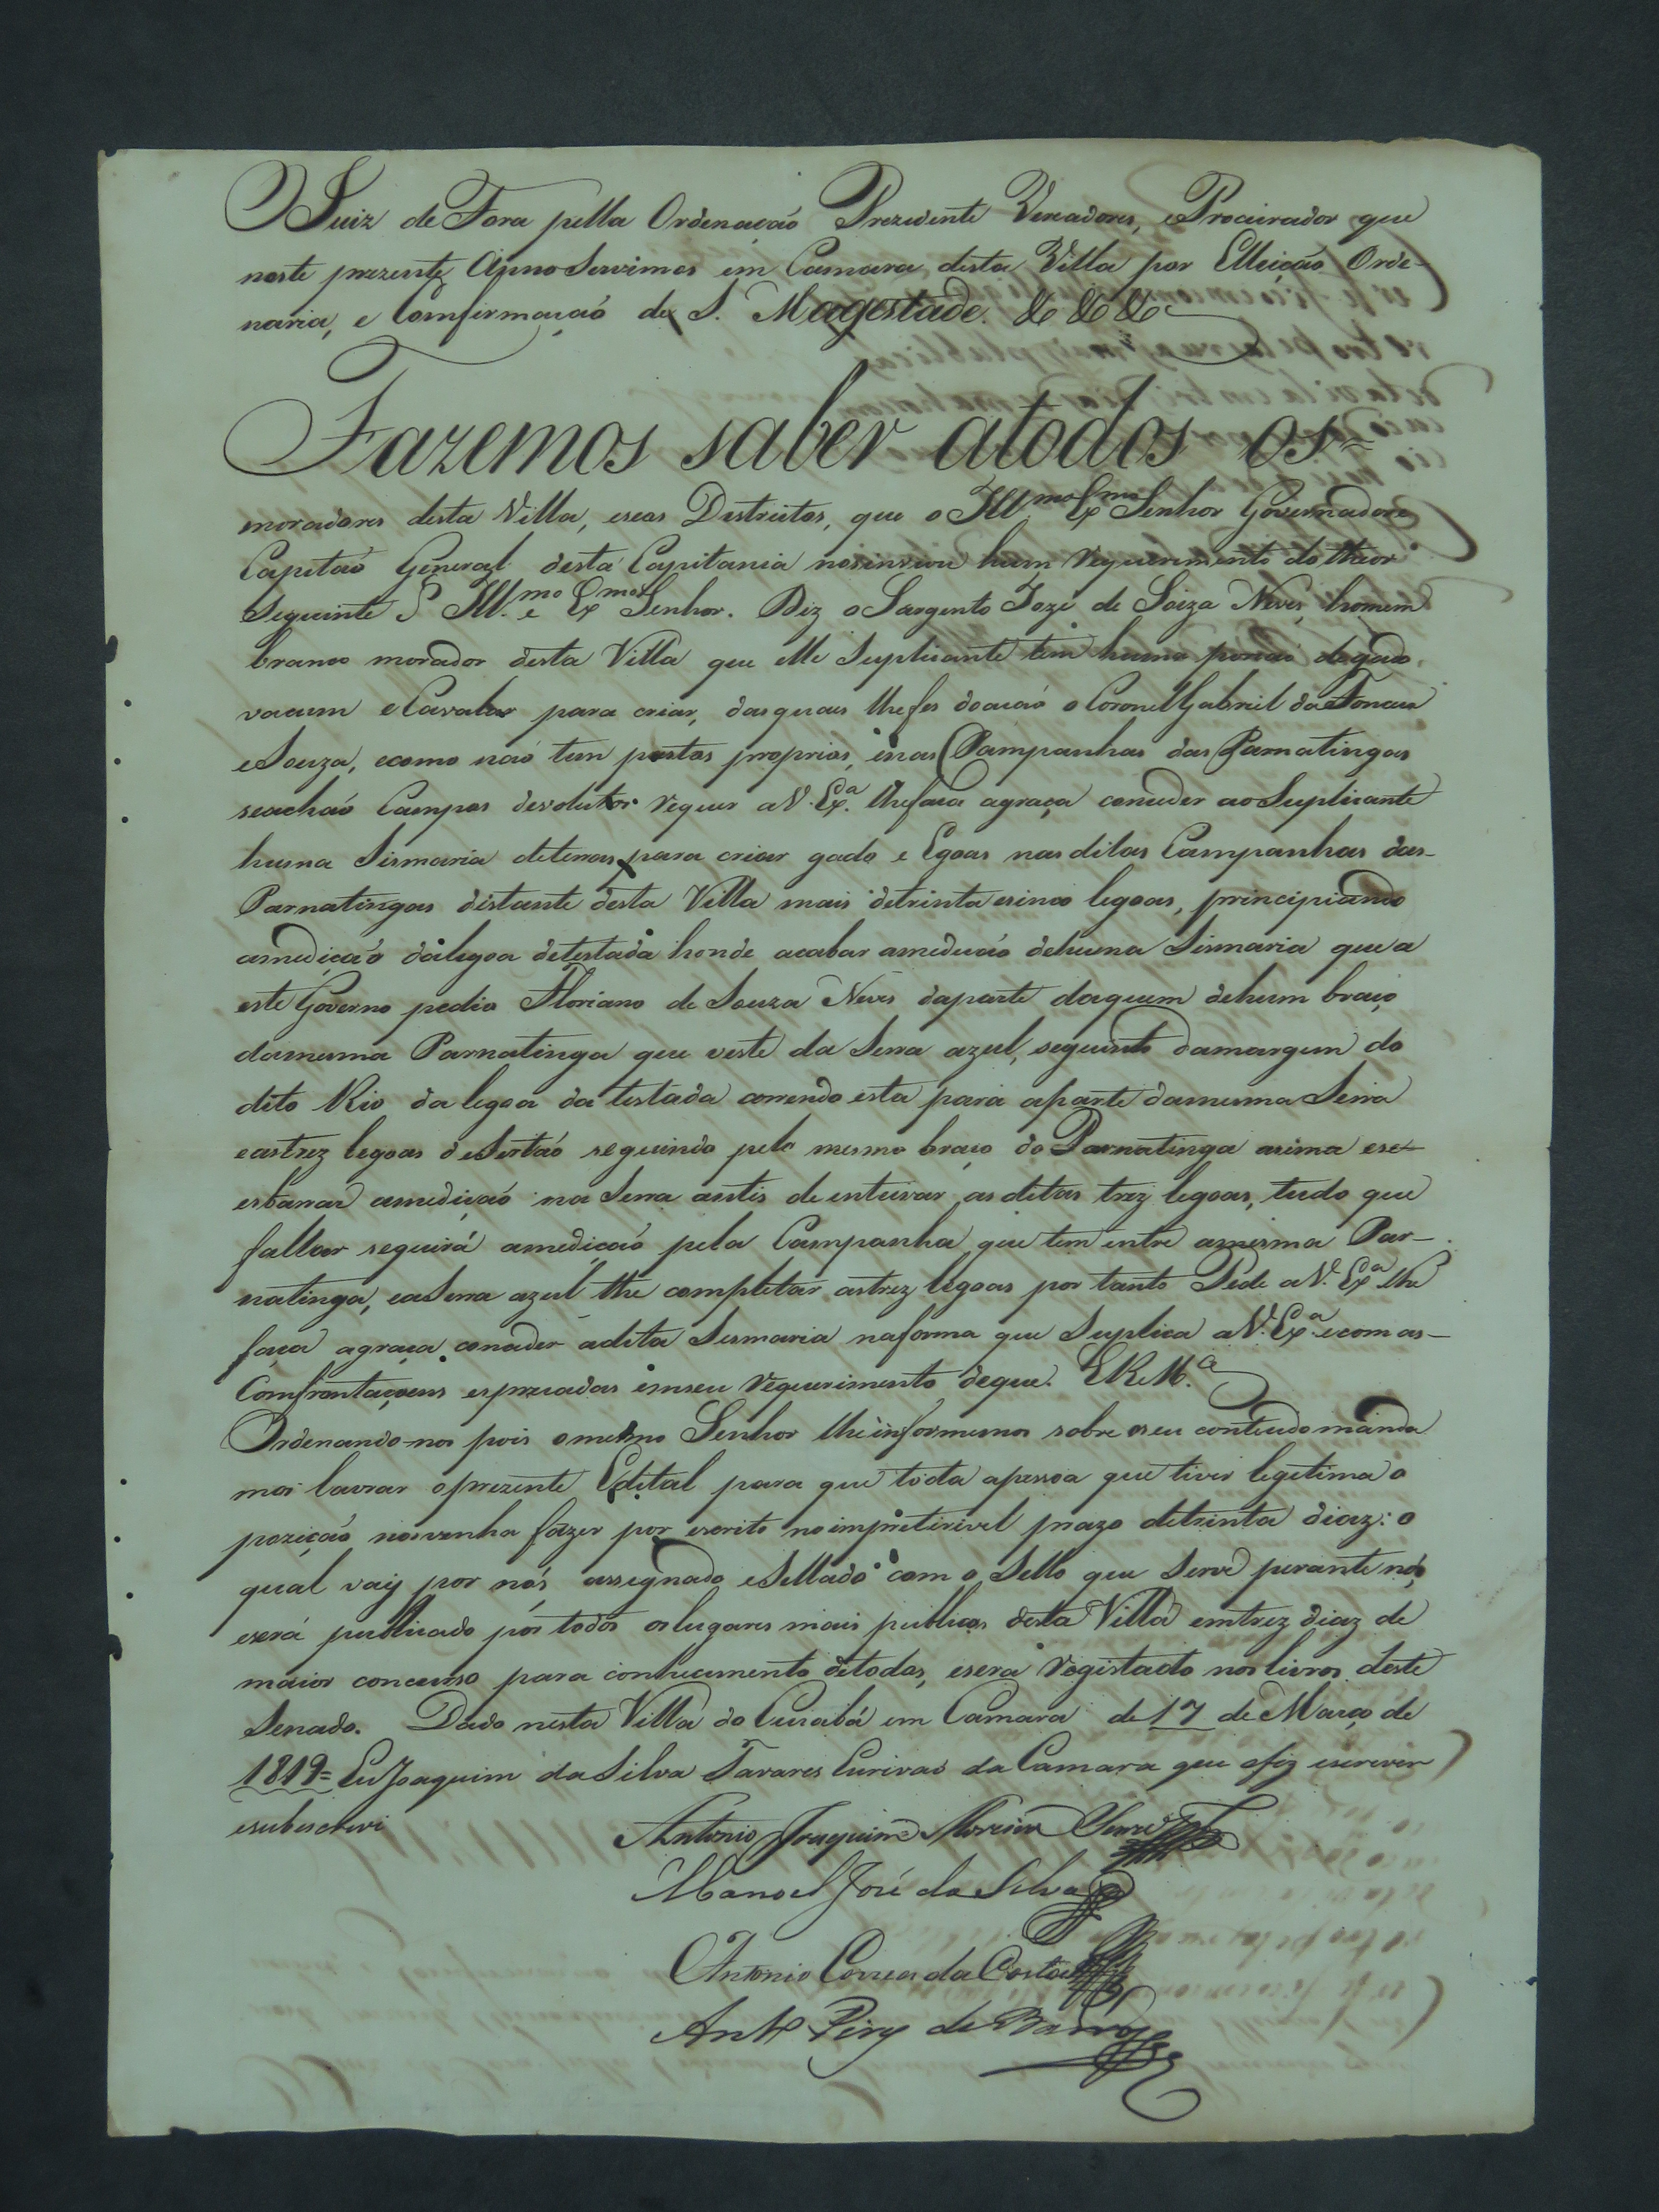 O Juiz de Fora pella Ordenação Prezidente Vereadores, e Procurador que
neste prezente Anno Servimos em Camara desta Villa por Elleição Orde-
naria, e Comfirmação de S. Magestade. & & &
Fazemos saber atodos os=
moradores desta Villa, eseos Destrictos, que o Ill.mo Ex.mo Senhor Governadore
Capitaõ General desta Capitania nosinviou hum requerimento do theor
Seguinte § Ill.mo e Ex.mo Senhor. Diz o Sargento Jozé de Soiza Neves, homem
branco morador desta Villa que elle Suplicante tem huma porcaõ degado
vacum eCavalar para criar, dasquaes lhefes doacaó o Coronel Gabriel da Fonceca
eSouza, ecomo naó tem pastos proprios, enas Campanhas das Parnatingas
seachaó Campos devolutos requer aV. Ex.a lhefaca agraça conceder ao Suplicante
huma Sismaria deterras para criar gado e Egoas nas ditas Campanhas das-
Parnatingas distante desta Villa mais detrinta ecinco legoas, principiando
amediçaõ dalegoa detestada honde acabar amedicaõ dehuma Sismaria que a
este Governo pedio Floriano de Souza Neves daparte daquem dehum braço
damesma Parnatinga que veste da Serra azul, seguindo damargem do
dito Rio da legoa da testada correndo esta para aparte damesma Serra
eastrez legoas deSertaõ seguindo pelo mesmo braço do Parnatinga asima ese-
esbarrar amediçaó na Serra antis de enteirar as ditas trez legoas, tudo que
faltar seguirá amedicaó pela Campanha que tem entre amesma Par-
natinga, eaSerra azul the completar astrez legoas por tanto Pede aV. Ex.a lhe
faça agraça conceder adita Sesmaria naforma que Suplica aV. Ex.a ecom as-
Comfrontaçoens espreçadas emseu requerimento deque. E R. M.ce
Ordenando-nos pois omesmo Senhor lheinformemos sobre oseu contheudo manda
mos lavrar oprezente Edital para que toda apessoa que tiver legitima o
pozição nosvenha fazer por escrito noimpretirivel prazo detrinta diaz: o
qual vay por nós assegnado eSellado com o Sello que Serve perante nós
eserá publicado por todos oslugares mais publicos desta Villa emtrez diaz de
maior concurso para conhecimento detodos, esera registado nos livros deste
Senado. Dado nesta Villa do Cuiabá em Camara de 17 de Março de
1819= Eu Joaquim da Silva Tavares Escrivaõ da Camara que ofiz escrever
esubescrevi
Antonio Joaquim Moreira
Manoel José da Silva
Antonio Correa da Costa
Ant.o Pirz de Barros